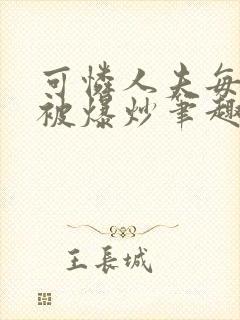 可憐人夫每
被爆炒筆趣
王長城